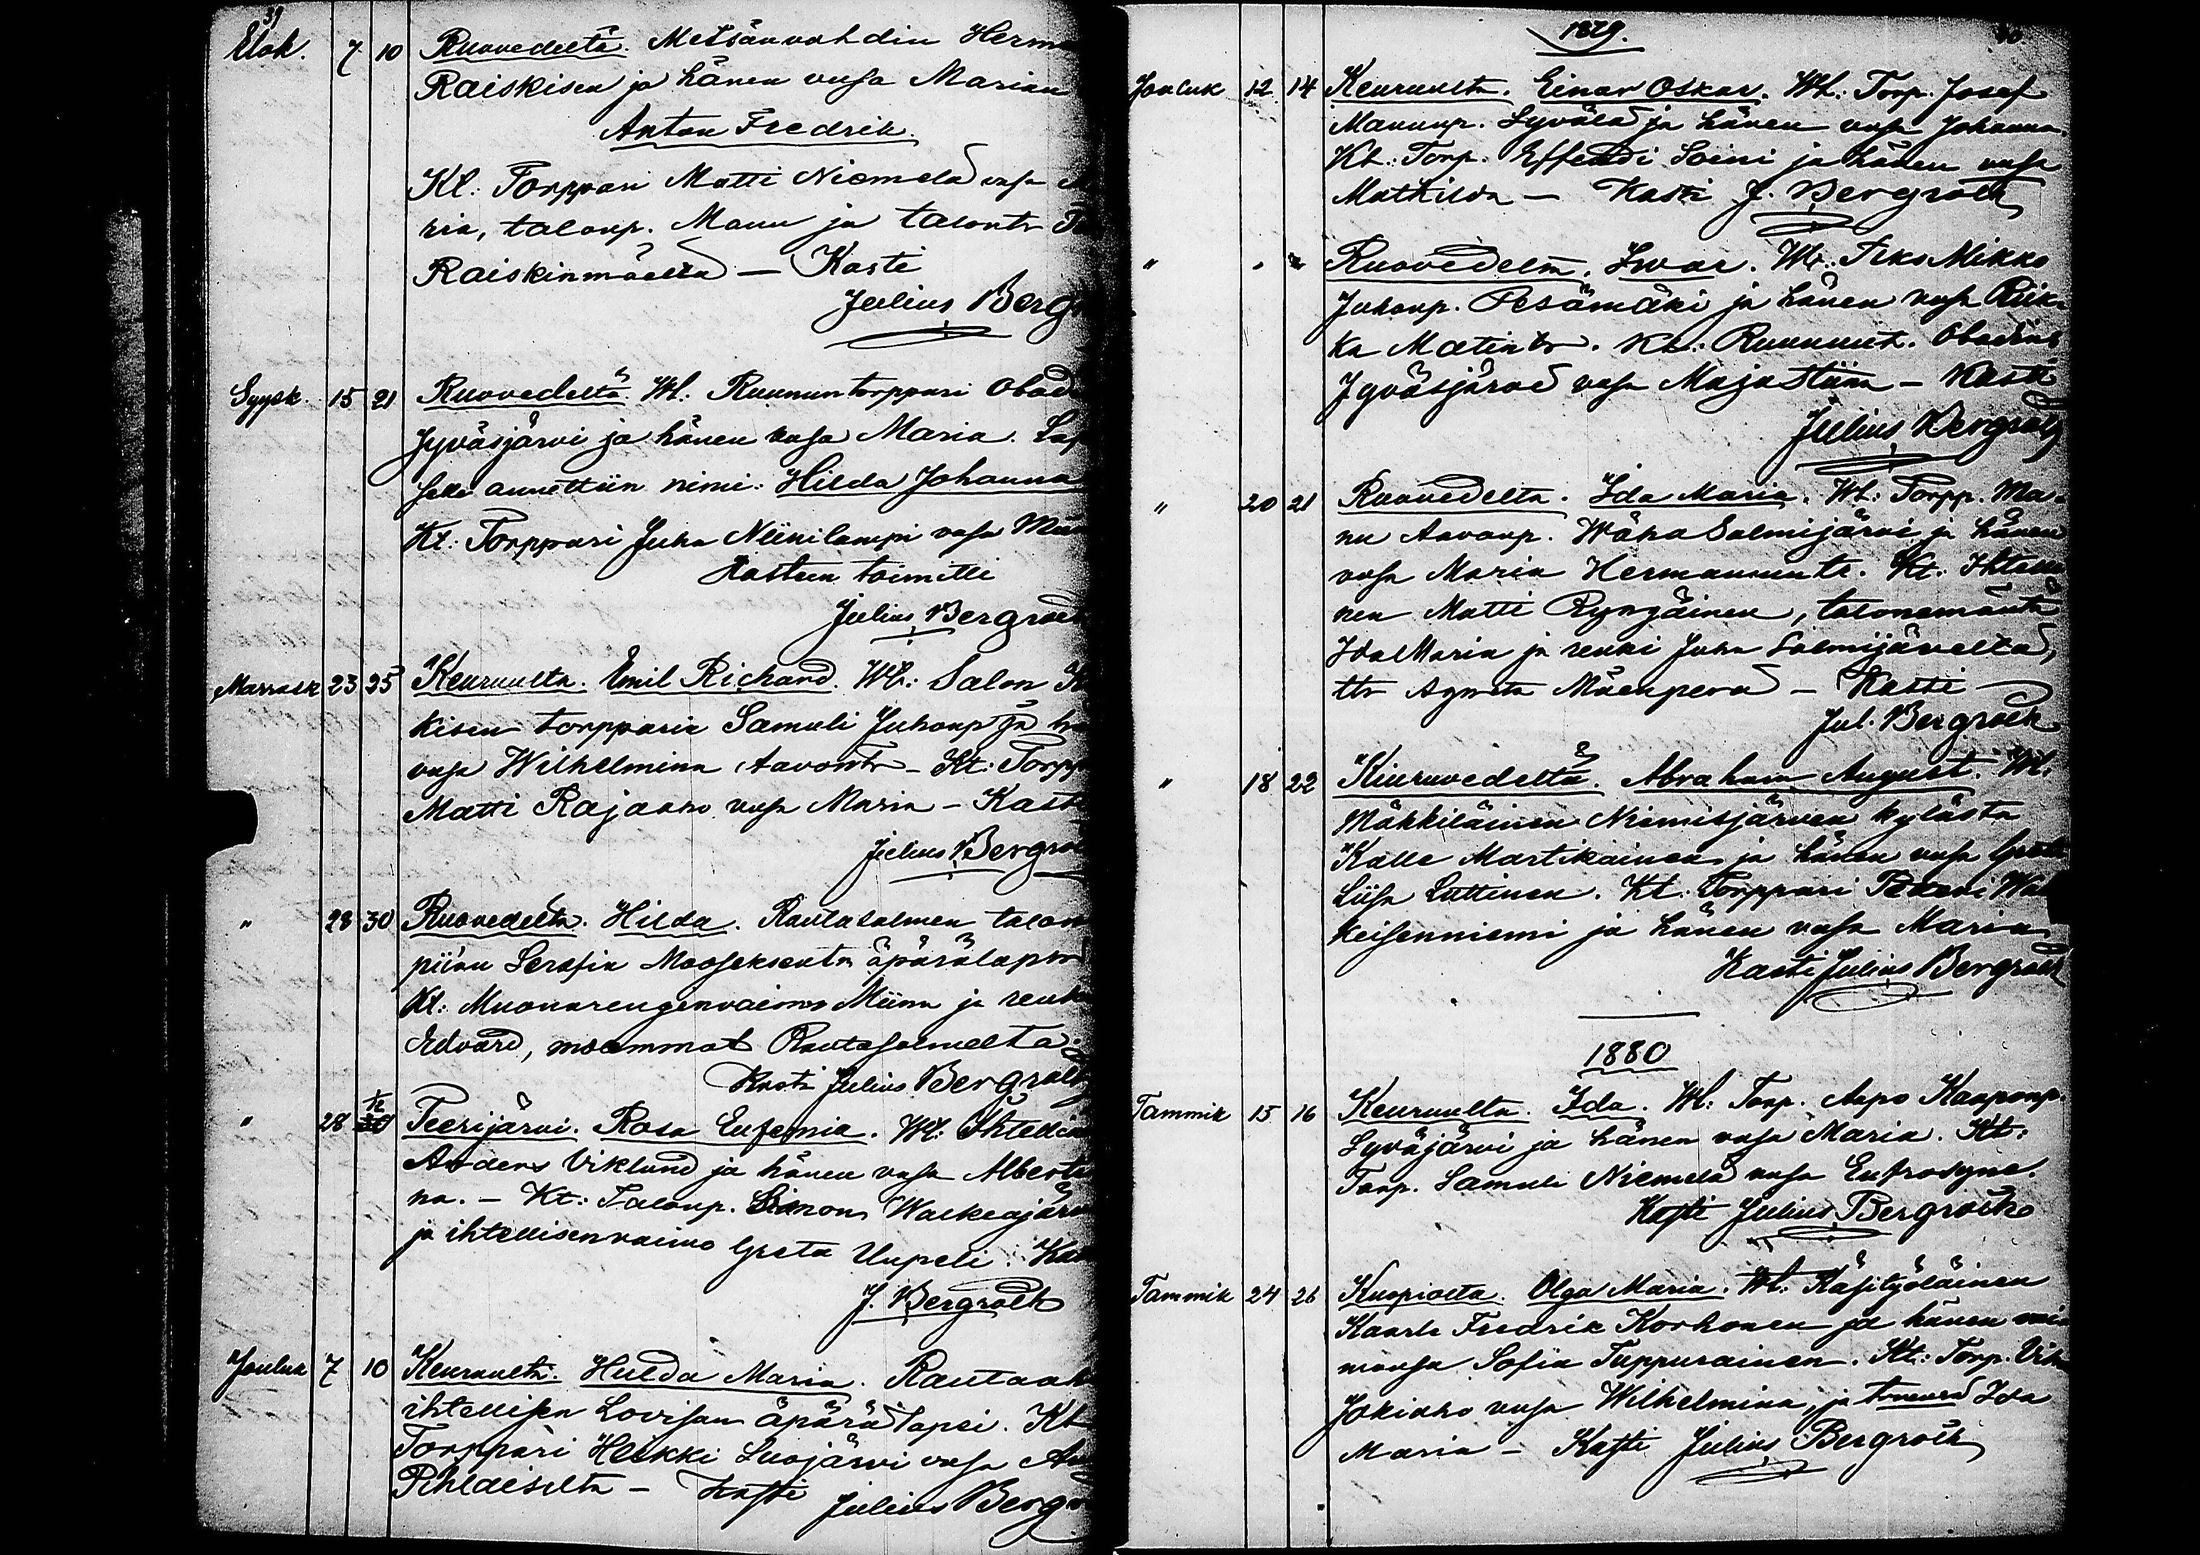 39
Elok. 7 10 Ruovedeltä. Metsänvahdin Herm
Raiskisen ja hänen vaṡa Marian
Anton Fredrik.
Kt. Torppari Matti Niemelä vaṡa
ria, talonp. Manu ja talontr
Raiskinmäeltä — Kasti
Julius Bergr
Syysk. 15 21 Ruovedeltä. Wt. Ruununtorppari Obad
Jyväsjärvi ja hänen vaṡa Maria. Lap
selle annettiin nimi: Hilda Johanna
Kt. Torppari Juha Niinilampi vaṡa Mar
Kasteen toimitti
Julius Bergroth
Marrask 23 25 Keuruulta. Emil Richard. Wt: Salon
kisen torpparin Samuli Juhonp ja h
vaṡa Wilhelmina Aavontr – Kt: Torpp
Matti Rajaaho vaṡa Maria – Kast
Julius Bergro
" 28 30 Ruovedeltä. Hilda. Rautasalmen talon
piian Serafia Mooseksentr äpärälapsi
Kt: Muonarengenvaimo Miina ja renk
Edvard, molemmat Rautasalmelta.
Kasti Julius Bergroth
" 28 Teerijärvi. Rosa Eufemia. Wt: Ihtelli
Anders Viklund ja hänen vaṡa Alberti
na. – Kt: Talonp. Simon Walkeajärv
ja ihtellisenvaimo Greta Uupeli. Kas
J. Bergroth
Jouluk 7 10 Keuruulta. Hulda Maria. Rautaah
ihtellisen Lovisan äpärälapsi. Kt
Torppari Heikki Luojärvi vaṡa
Pihlaiselta – Kasti Julius Bergr
1879.
40
Jouluk 12 14 Keuruulta. Einar Oskar. Wt: Torp. Josef
Manunp. Syvälä ja hänen vaṡa Johanna.
Kt: Torp. Effendi Soini ja hänen vaṡa
Mathilda – Kasti J. Bergroth
" " " Ruovedeltä. Iwar. Wt: Mikko
Juhonp. Pesämäki ja hänen vaṡa Riik-
ka Matintr. Kt: Ruununt. Obadias
Jyväsjärvi vaṡa Maja Stiina – Kasti
Julius Bergroth
" 20 21 Ruovedeltä. Ida Maria. Wt: Torpp. Ma-
nu Aavonp. Wäha Salmijärvi ja hänen
vaṡa Maria Hermannintr. Kt: Ihtelli
nen Matti Ryngäinen, talonemäntä
Ida Maria ja renki Juha Salmijärveltä,
ttr Agneta Mäenperä – Kasti
Jul. Bergroth
" 18 22 Kiuruvedeltä. Abraham August. Wt:
Mäkkiläinen Niemisjärven kylästä
Kalle Martikainen ja hänen vaṡa Greta
Liisa Luttinen. Kt: Torppari Taavi Wal
keisenniemi ja hänen vaṡa Maria
Kasti Julius Bergroth
1880
Tammik 15 16 Keuruulta. Ida. Wt: Torp. Aapo Kaaponp.
Syväjärvi ja hänen vaṡa Maria. Kt:
Torp. Samuli Niemelä vaṡa Eufrosyne.
Kasti Julius Bergroth
Tammik 24 26 Kuopiosta. Olga Maria. Wt: Käsityöläinen
Kaarle Fredrik Korhonen ja hänen vai
monsa Sofia Tuppurainen. Kt: Torp.
Jokiaho vaṡa Wilhelmina, ja Ida
Maria – Kasti Julius Bergroth